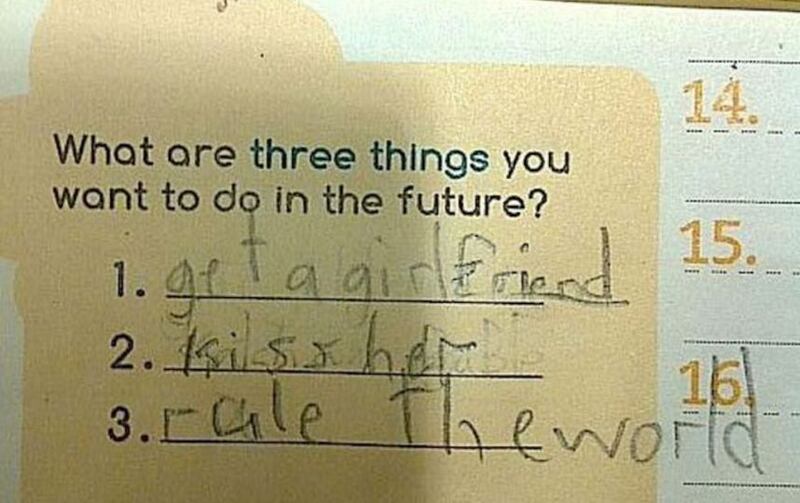 What are three things you
want to do in the future?
1. get a girlfriend
2. kiss her
3. rule the world
14.
15.
16.